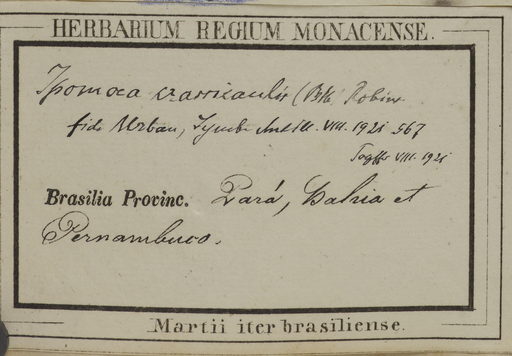 HERBARIUM REGIUM MONACENSE.
Ipomoea crassicaulis (Bth) Robins
fide Urban, Symb. Antill. VIII. 1921 567
VIII. 1921
Brasilia Provinc. Pará, Bahia et
Pernambuco.
Martii iter brasiliense.